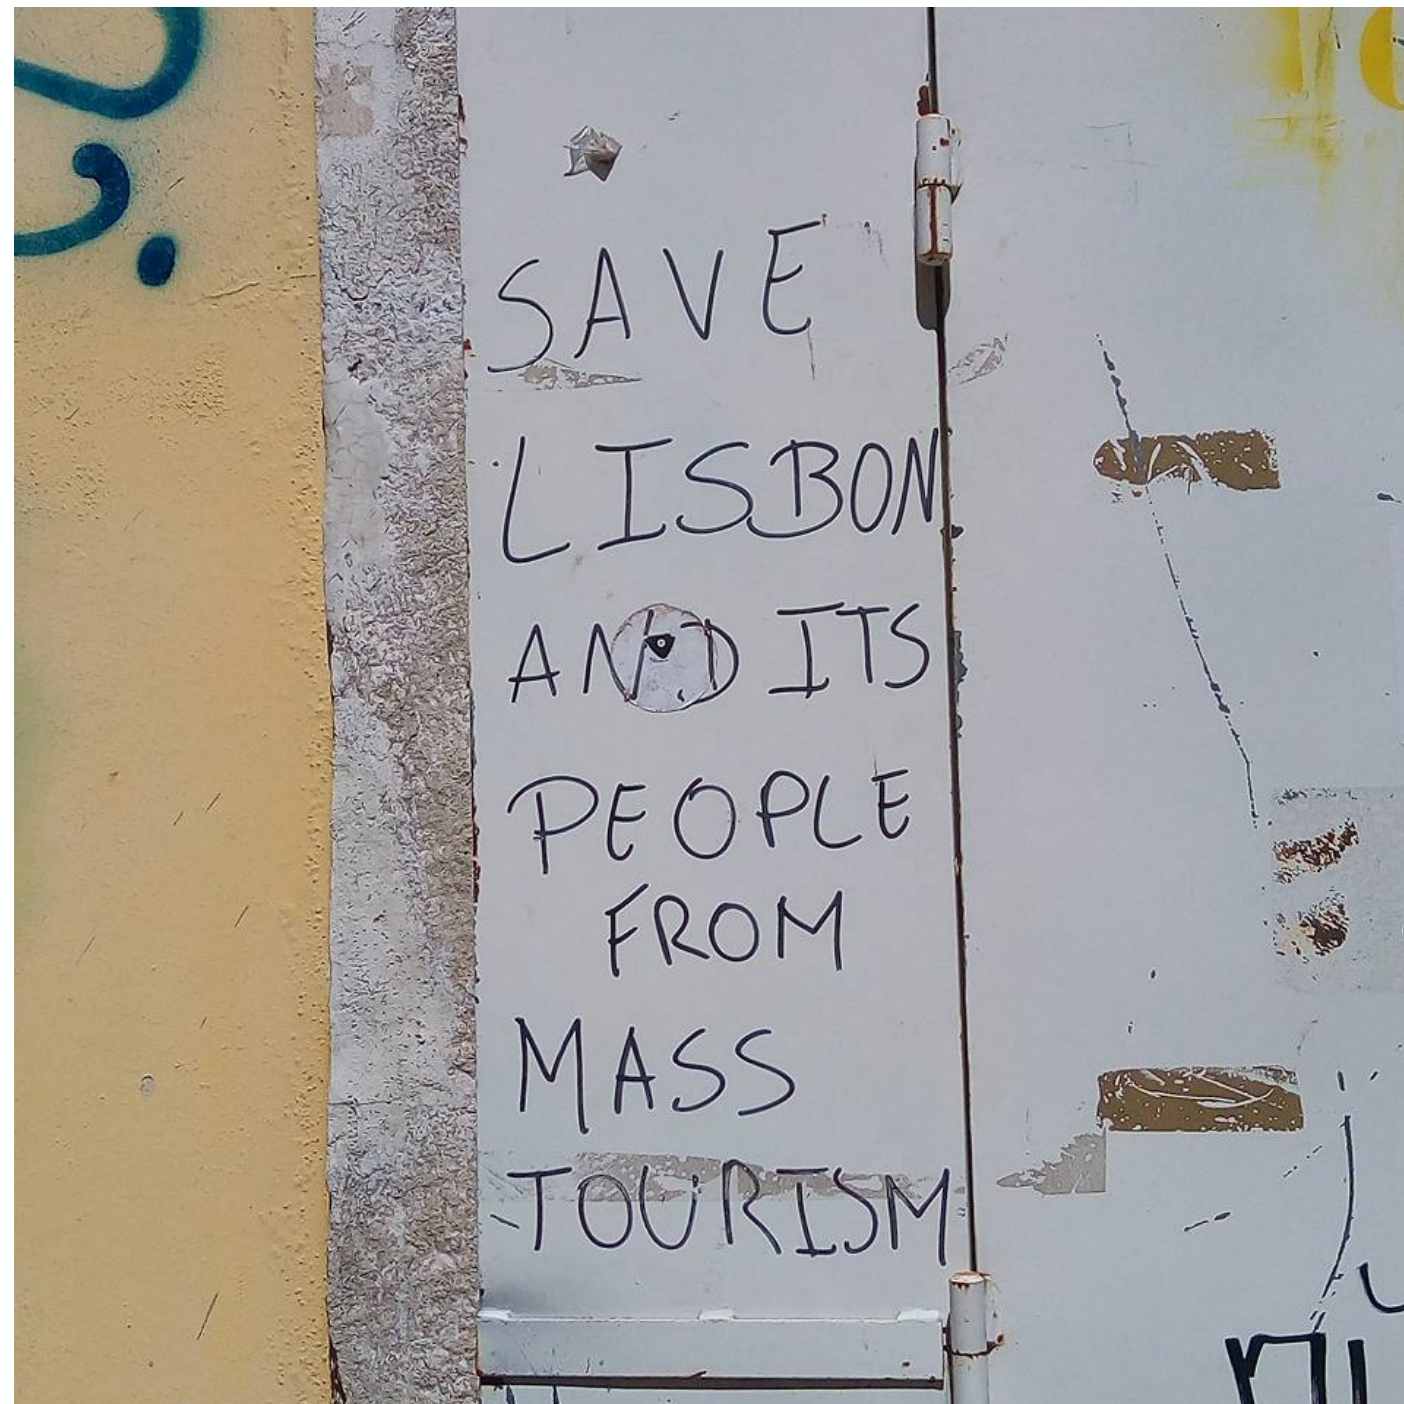 SAVE
LISBON
AND ITS
PEOPLE
FROM
MASS
TOURISM